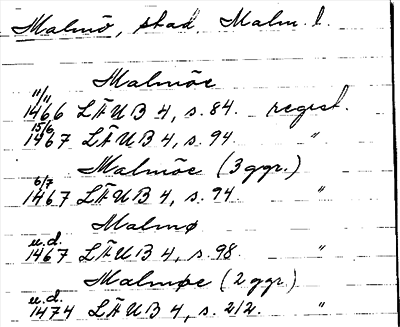 Malmö, stad, Malm. l.
Malmöe
11/11
1466 LÄUB 4, s. 84. regest.
15/6
1467 LÄUB 4, s. 94. "
Malmöe (3 ggr.)
6/7
1467 LÄUB 4, s. 94 "
Malmø
u.d.
1467 LÄUB 4, s. 98. "
Malmøe (2 ggr)
u.d.
1474 LÄUB 4, s. 212. "